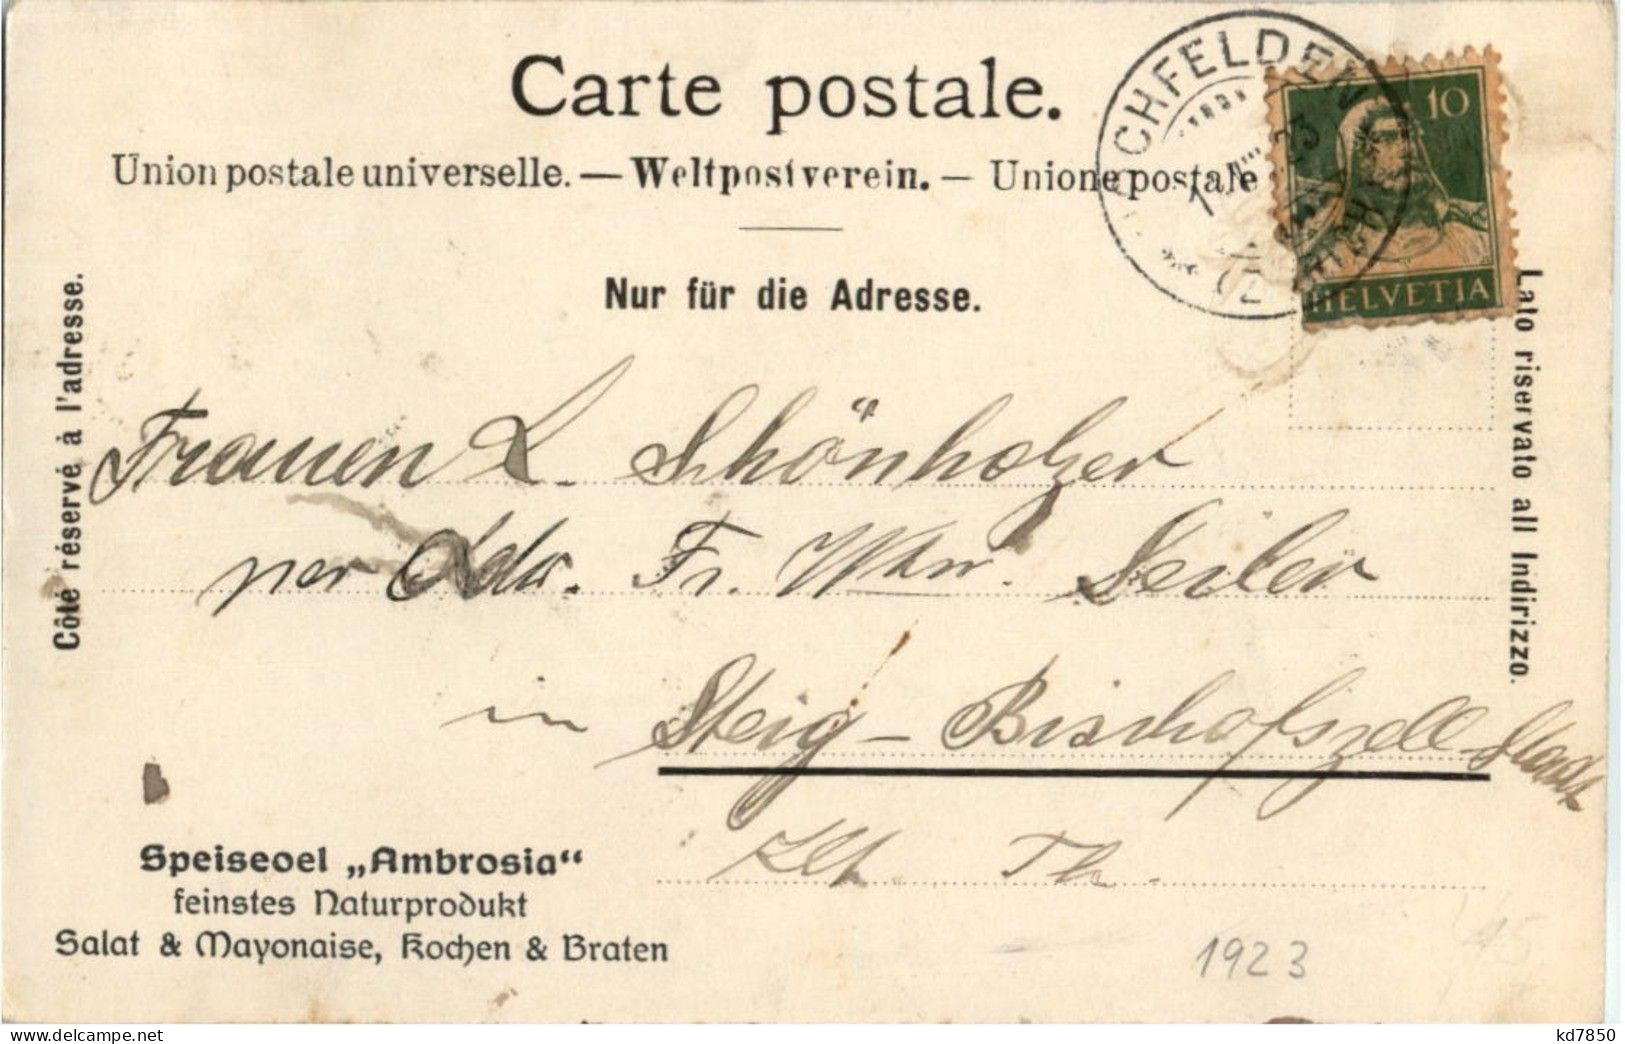 Carte postale.
Union postale universelle. — Weltpostverein. — Unione postale
Nur für die Adresse.
Côté réservé à l'adresse.
Lato riservato all Indirizzo.
CHFELDEN
10
HELVETIA
Frauen L. Schönholzer
per Adr. Fr. Wwe. Seiler
in Steig - Bischofszell - Stadt
Kt. Th.
Speiseoel „Ambrosia“
feinstes Naturprodukt
Salat & Mayonaise, Kochen & Braten
1923
delcampe.net
kd7850